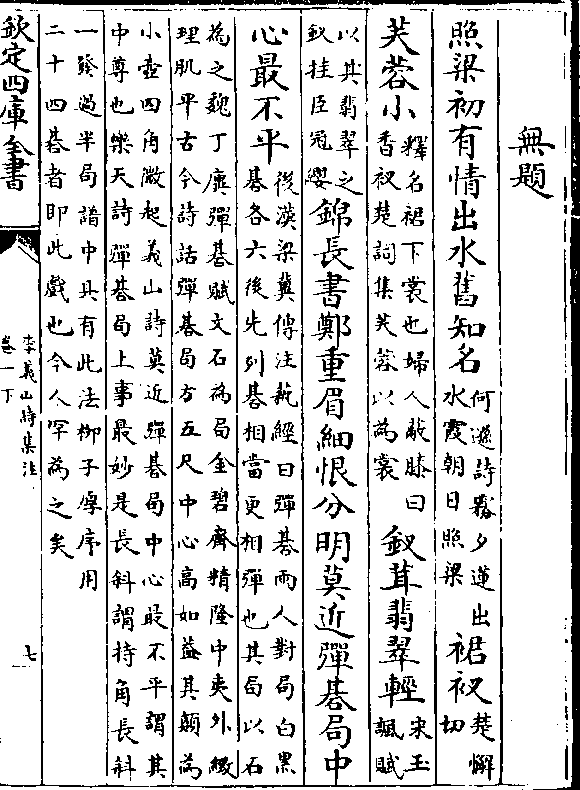 無題
照梁初有情出水舊知名何遜詩霧夕蓮出水霞朝日照梁裙衩楚懈切
芙蓉小釋名裙下裳也婦人蔽膝曰香衩楚詞集芙蓉以為裳釵茸翡翠輕宋玉諷賦
以其翡翠之釵挂臣冠纓錦長書鄭重眉細恨分明莫近彈碁局中
心最不平後漢梁冀傳注藝經曰彈碁兩人對局白黑碁各六後先列碁相當更相彈也其局以石
為之魏丁廙彈碁賦文石為局金碧齊精隆中夷外緻理肌平古今詩話彈碁局方五尺中心高如葢其顛為
小壺四角微起義山詩莫近彈碁局中心最不平謂其中尊也樂天詩彈碁局上事最妙是長斜謂持角長斜
一發過半局譜中具有此法栁子厚序用二十四碁者即此戲也今人罕為之矣
欽定四庫全書
李義山詩集注
卷一下
七